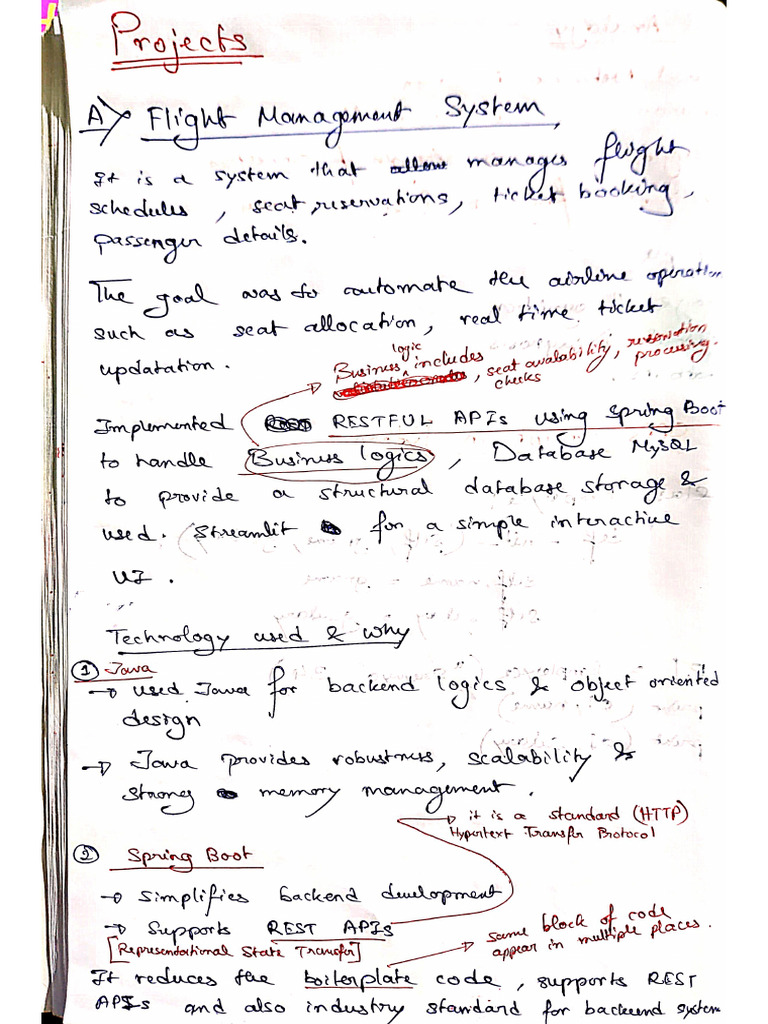 Projects
A) Flight Management System
It is a system that manages flight
schedules, seat reservations, ticket booking,
passenger details.
The goal was to automate the airline operati
such as seat allocation, real time ticket
updatation.
Business logic includes
, seat availability checks, reservation processing.
Implemented RESTFUL APIs using Spring Boot
to handle Business logics, Database MySQL
to provide a structural database storage &
used. Streamlit for a simple interactive
UI.
Technology used & why
① Java
→ used Java for backend logics & object oriented
design
→ Java provides robustness, scalability &
strong memory management.
→ it is a standard (HTTP)
Hypertext Transfer Protocol
② Spring Boot
→ Simplifies backend development
→ Supports REST APIs
[Representational State Transfer]
→ same block of code
appear in multiple places.
It reduces the boilerplate code, supports REST
APIs and also industry standard for backend system